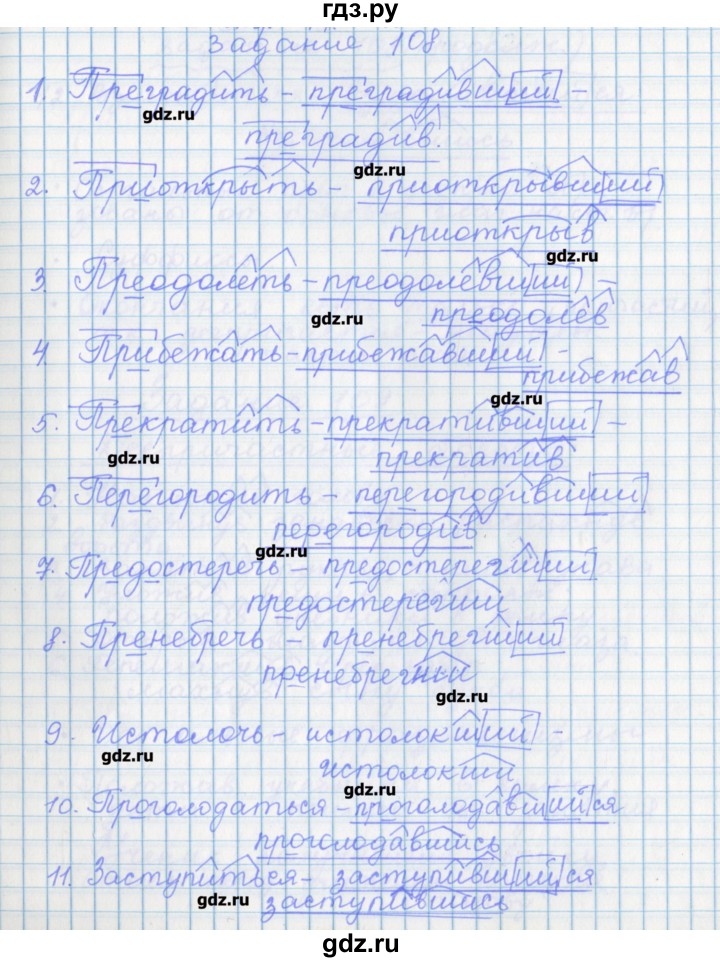 гдз.ру
Задание 108
1. Преградить - преградивший -
gdz.ru
преградив.
gdz.ru
2. Приоткрыть - приоткрывший
приоткрыв
gdz.ru
3. Преодолеть - преодолевший -
gdz.ru
преодолев
4. Прибежать - прибежавший -
прибежав
gdz.ru
5. Прекратить - прекративший -
gdz.ru
прекратив
6. Перегородить - перегородивший
перегородив.
gdz.ru
7. Предостеречь - предостерегший
предостерегши
8. Пренебречь - пренебрегший
пренебрегши
gdz.ru
9. Истолочь - истолокший -
gdz.ru
истолокши
gdz.ru
10. Проголодаться - проголодавшийся
проголодавшись
11. Заступиться - заступившийся
gdz.ru
заступившись
gdz.ru